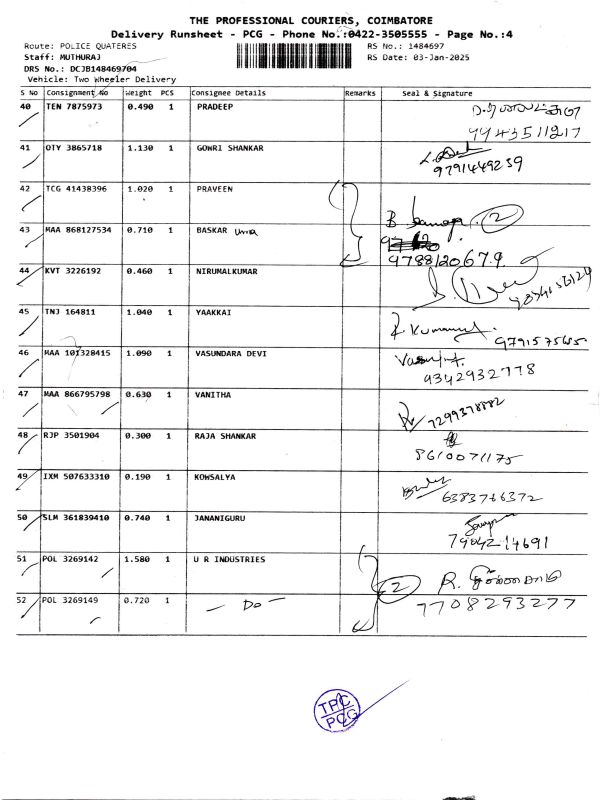 THE PROFESSIONAL COURIERS, COIMBATORE
Delivery Runsheet - PCG - Phone No.:0422-3505555 - Page No.:4
Route: POLICE QUATERES RS No.: 1484697
Staff: MUTHURAJ RS Date: 03-Jan-2025
DRS No.: DCJB148469704
Vehicle: Two Wheeler Delivery
S No Consignment No Weight PCS Consignee Details Remarks Seal & Signature
40 TEN 7875973 0.490 1 PRADEEP
9443511217
41 OTY 3865718 1.130 1 GOWRI SHANKAR
9791449259
42 TCG 41438396 1.020 1 PRAVEEN
43 MAA 868127534 0.710 1 BASKAR B 2
9788120679
44 KVT 3226192 0.460 1 NIRUMALKUMAR
45 TNJ 164811 1.040 1 YAAKKAI
R. Kumar
46 MAA 101328415 1.090 1 VASUNDARA DEVI
9342932778
47 MAA 866795798 0.630 1 VANITHA
7299378882
48 RJP 3501904 0.300 1 RAJA SHANKAR
8610071175
49 IXM 507633310 0.190 1 KOWSALYA
6383766372
50 SLM 361839410 0.740 1 JANANIGURU
79042 14691
51 POL 3269142 1.580 1 U R INDUSTRIES
2 R.
52 POL 3269149 0.720 1 - Do - 7708293277
TPC
PCG